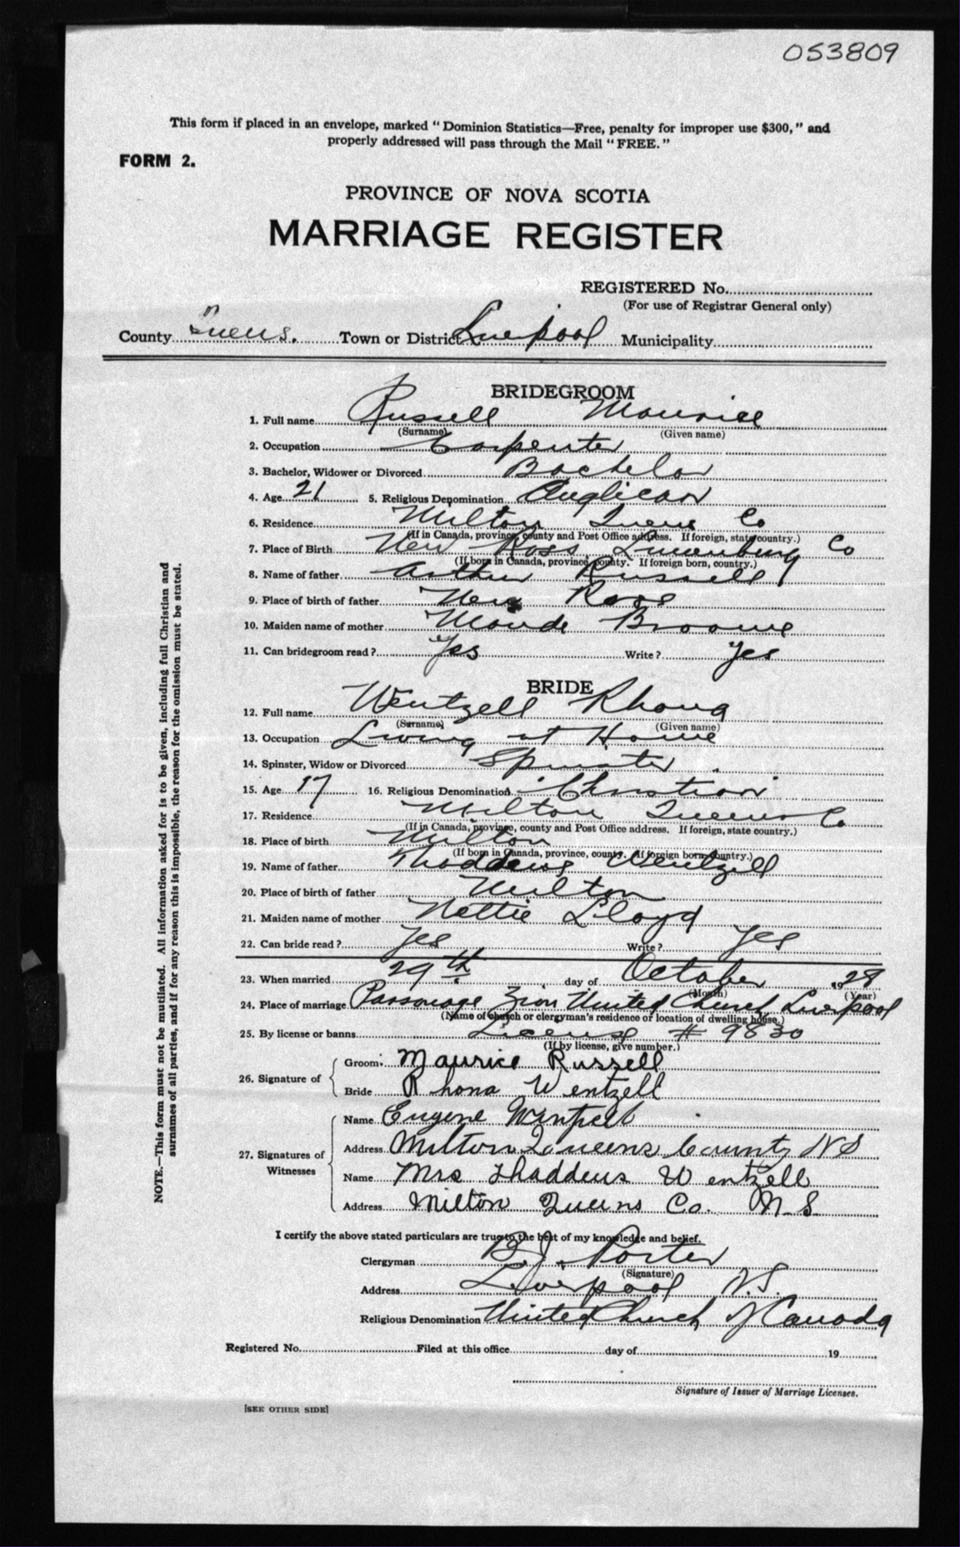 053809
This form if placed in an envelope, marked "Dominion Statistics—Free, penalty for improper use $300," and
properly addressed will pass through the Mail "FREE."
FORM 2.
PROVINCE OF NOVA SCOTIA
MARRIAGE REGISTER
REGISTERED No.
(For use of Registrar General only)
County Queens. Town or District Liverpool Municipality
BRIDEGROOM
1. Full name Russell Maurice
(Surname) (Given name)
2. Occupation Carpenter
3. Bachelor, Widower or Divorced Bachelor
4. Age 21 5. Religious Denomination Anglican
6. Residence Milton Queens Co
(If in Canada, province, county and Post Office address. If foreign, state country.)
7. Place of Birth New Ross Lunenburg Co
(If born in Canada, province, county. If foreign born, country.)
8. Name of father Arthur Russell
9. Place of birth of father New Ross
10. Maiden name of mother Maude Broome
11. Can bridegroom read? Yes Write? Yes
BRIDE
12. Full name Wentzell Rhona
(Surname) (Given name)
13. Occupation Living at Home
14. Spinster, Widow or Divorced Spinster
15. Age 17 16. Religious Denomination Christian
17. Residence Milton Queens Co
(If in Canada, province, county and Post Office address. If foreign, state country.)
18. Place of birth Milton
(If born in Canada, province, county. If foreign born country.)
19. Name of father Thaddeus Wentzell
20. Place of birth of father Milton
21. Maiden name of mother Nettie Lloyd
22. Can bride read? Yes Write? Yes
23. When married 29th day of October 1928
(Month) (Year)
24. Place of marriage Parsonage Zion United Church Liverpool
(Name of church or clergyman's residence or location of dwelling house.)
25. By license or banns License # 9830
(If by license, give number.)
26. Signature of
Groom Maurice Russell
Bride Rhona Wentzell
27. Signatures of Witnesses
Name Eugene
Address Milton Queens County NS
Name Mrs Thaddeus Wentzell
Address Milton Queens Co. N.S.
I certify the above stated particulars are true to the best of my knowledge and belief.
Clergyman B.J. Porter
(Signature)
Address Liverpool N.S.
Religious Denomination United Church of Canada
Registered No. Filed at this office day of 19
Signature of Issuer of Marriage Licenses.
[SEE OTHER SIDE]
NOTE.—This form must not be mutilated. All information asked for is to be given, including full Christian and
surnames of all parties, and if for any reason this is impossible, the reason for the omission must be stated.